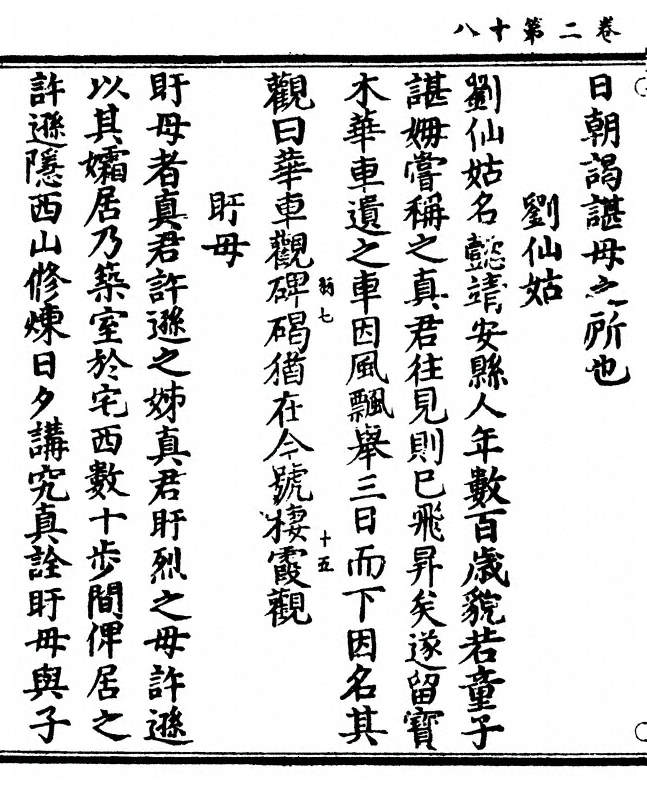 卷二第十八
日朝謁諶母之所也
劉仙姑
劉仙姑名懿靖安縣人年數百歲貌若童子
諶姆嘗稱之真君往見則已飛昇矣遂留寶
木華車遺之車因風飄舉三日而下因名其
觀曰華車觀碑碣猶在今號棲霞觀
翔七
十五
盱母
盱母者真君許遜之姊真君盱烈之母許遜
以其孀居乃築室於宅西數十步間俾居之
許遜隱西山修煉日夕講究真詮盱母與子